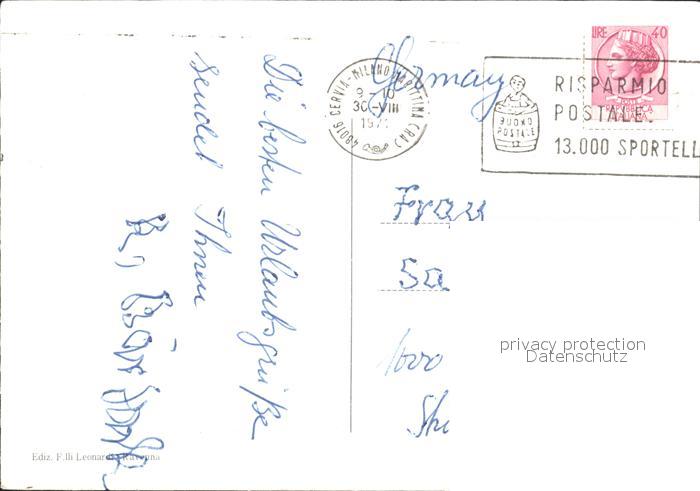 Die besten Urlaubsgrüße
sendet Ihnen
Germany
48016 CERVIA-MILANO MARITTIMA (RA)
9 - 10
30-VIII
LIRE 40
BUONO
POSTALE
RISPARMIO
POSTALE:
13.000 SPORTELL
Frau
Sa
1000
privacy protection
Datenschutz
Ediz. F.lli Leonardi - Ravenna